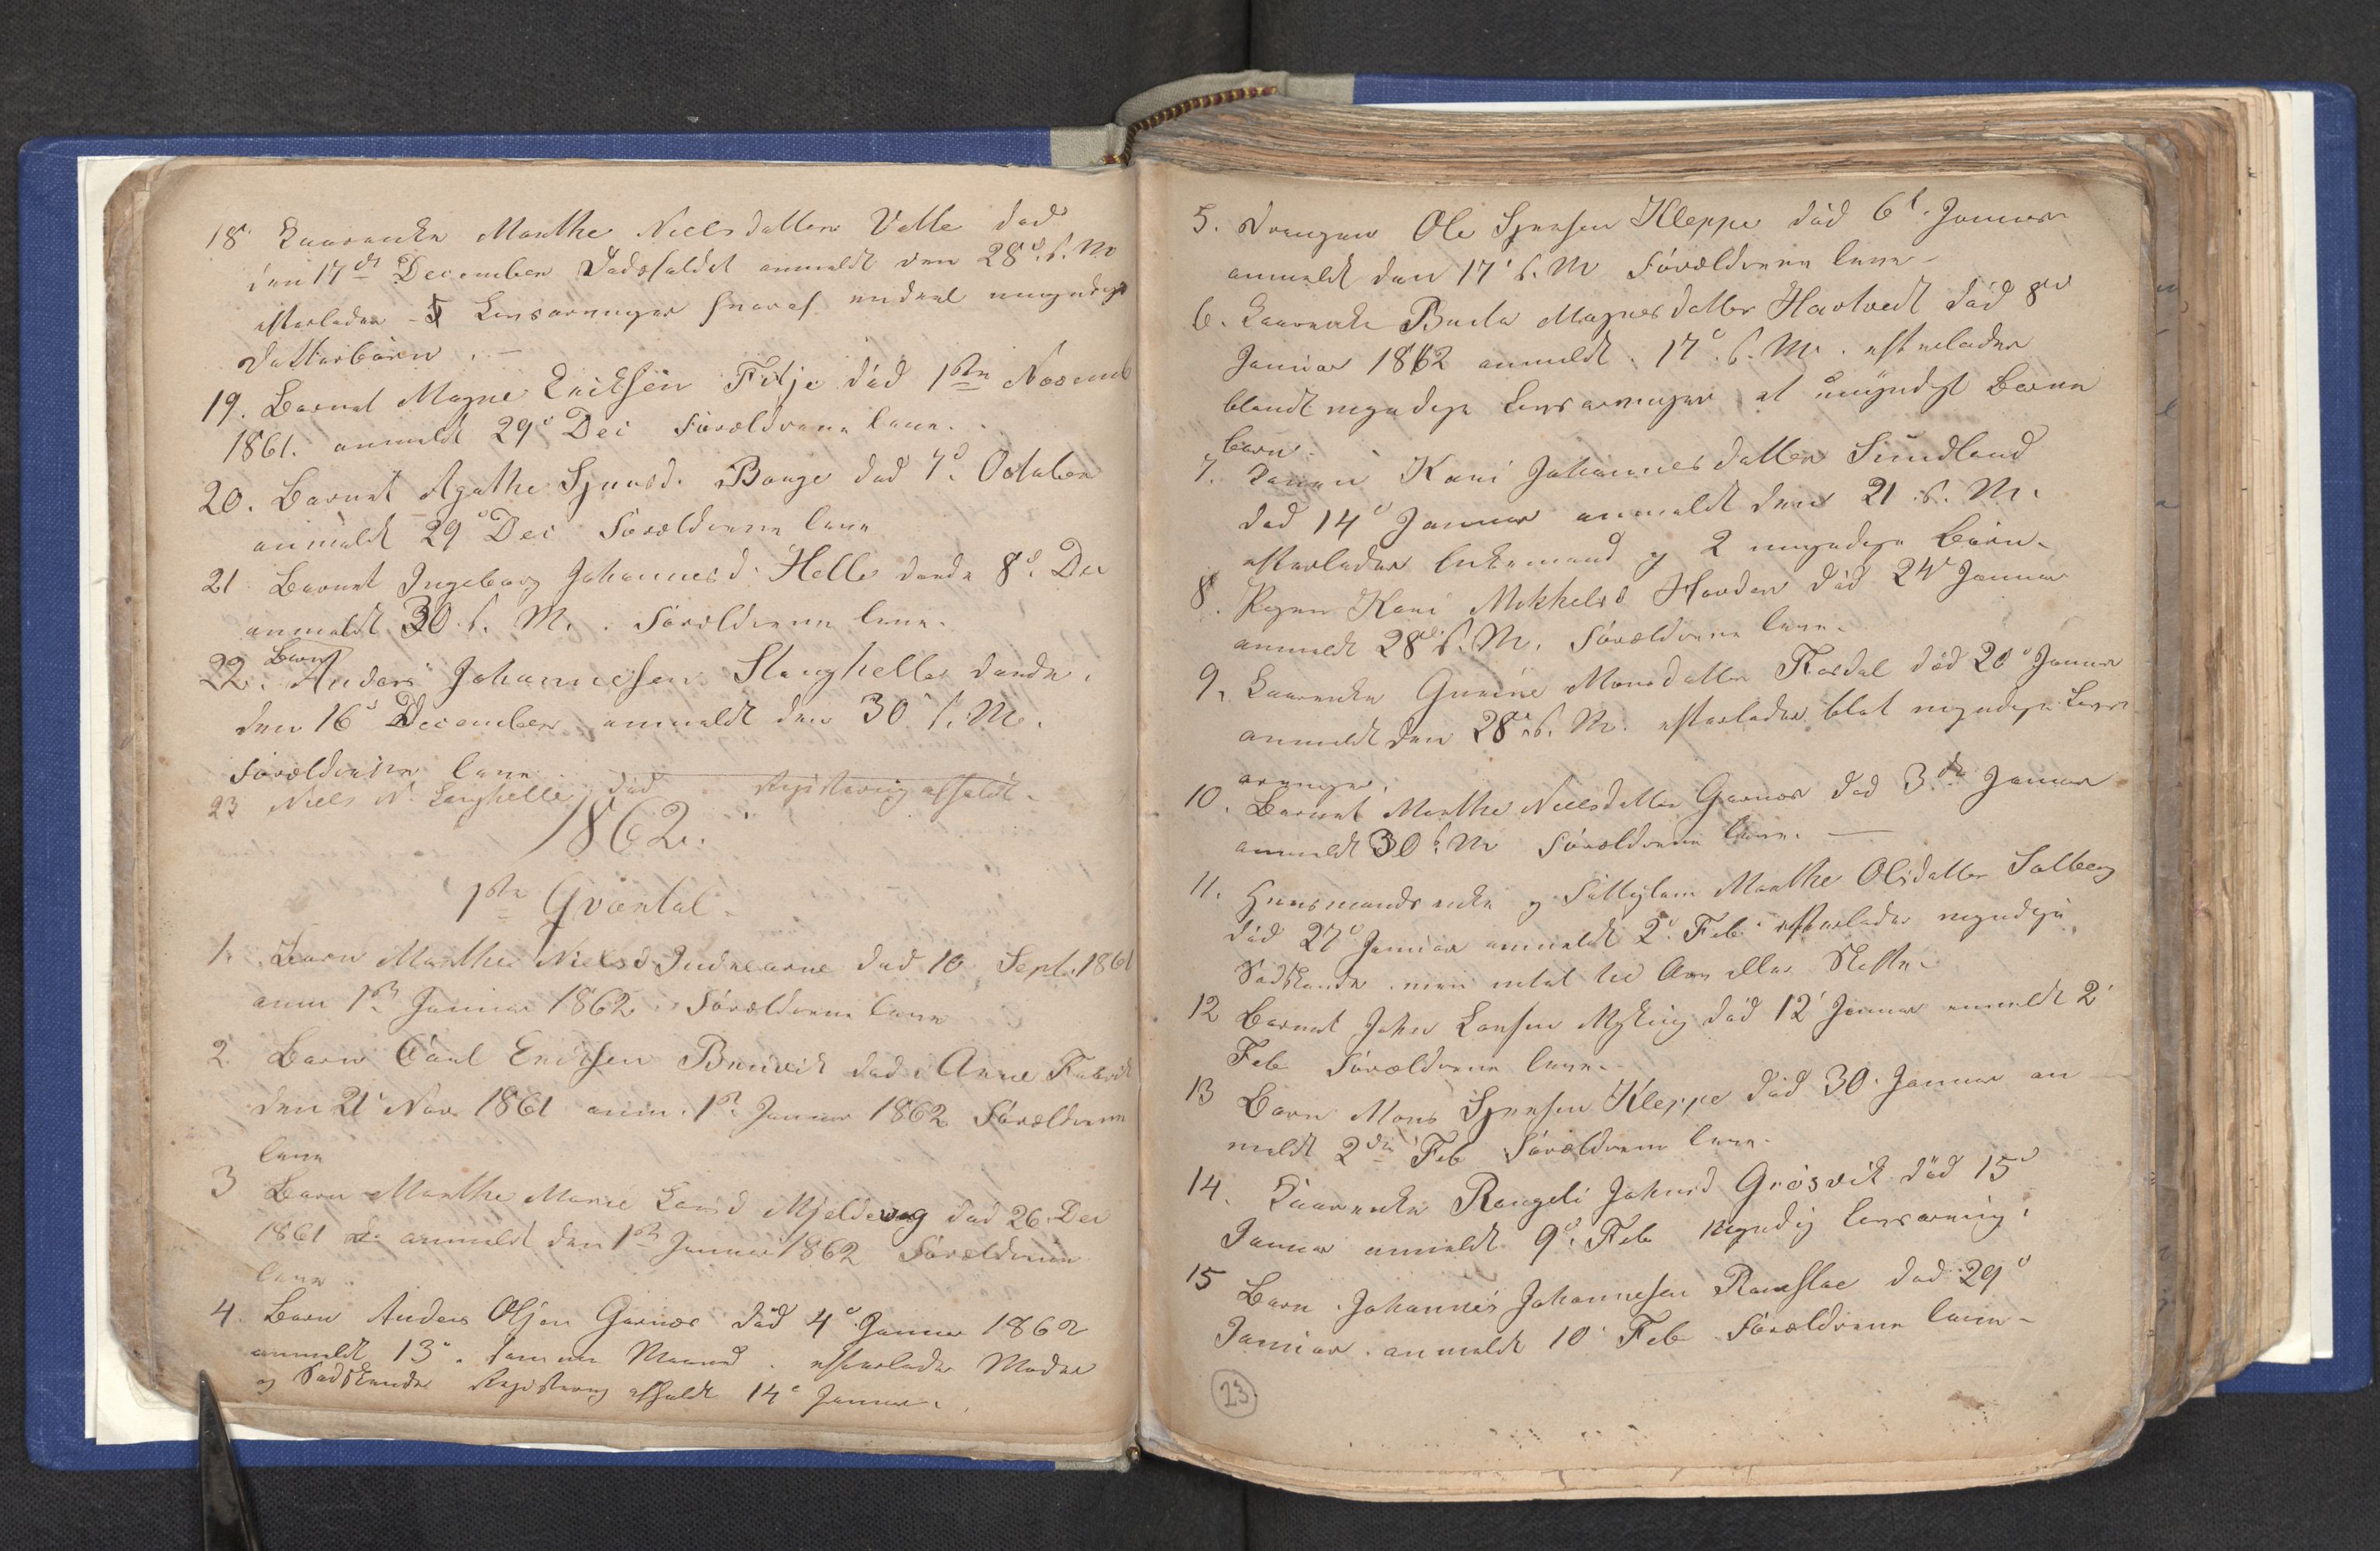 18. Kaarenke Marthe Nielsdatter Valle død
den 17de December Dødsfaldet anmeldt den 28de s. M
efterlader 5 Livsarvinger hvoraf endeel umyndige
Datterbørn. –
19. Barnet Magne Eriksen Fitje død 1ste Novemb
1861. anmeldt 29d Dec Forældrene leve.
20. Barnet Agathe Sjursd. Bauge død 7d. October
anmeldt 29d Dec Forældrene leve
21 Barnet Ingeborg Johannesd. Helle døde 8d. Dec
anmeldt 30 s. M. Forældrene leve.
22. Barnet Anders Johannesen Stanghelle døde
den 16d December anmeldt den 30 s. M.
Forældrene leve.
23 Niels N. Langhelle død Registrering afholdt –
1862.
1ste Qvartal.
1. Barn Marthe Nielsd. død 10 Sept. 1861
anm 1st Januar 1862. Forældrene leve
2. Barn Carl Eriksen Bruvik død i
den 21d Nov. 1861 anm. 1st. Januar 1862 Forældrene
leve
3 Barn Marthe Marie Larsd Mjeldevag død 26. Dec
1861 anmeldt den 1ste Januar 1862 Forældrene
leve.
4. Barn Anders Olsen Garnæs død 4d Januar 1862
anmeldt 13d. samme Maaned. efterlader Moder
og Sødskende Registrering afholdt 14d Januar.
5. Drengen Ole Sjursen Kleppe død 6t. Januar
anmeldt den 17d s. M Forældrene leve –
6. Kaarenke Magnesdatter Havtvedt død 8d
Januar 1862 anmeldt 17d. s. M. efterlader
blandt myndige Livsarvinger et umyndigt Barne
barn.
7. Konen Kari Johannesdatter Sundland
død 14d Januar anmeldt den 21 s. M.
efterlader Enkemand og 2 umyndige Børn –
8. Pigen Kari Mikkelsd Havden død 24d Januar
anmeldt 28de s. M. Forældrene leve –
9. Kaarenke Monsdatter død 20d Januar
anmeldt den 28de s. M. efterlader blot myndige Livs
arvinger.
10. Barnet Marthe Nielsdatter Garnæs død 3de Januar
anmeldt 30 s. M Forældrene leve. –
11. Huusmandsenke og Fattiglem Marthe Olsdatter Solberg
død 27d Januar anmeldt 2d. Feb. efterlader myndige
Sødskende men intet til Arv eller Skifte –
12 Barnet Johan Larsen Myking død 12' Januar anmeldt 2'
Feb Forældrene leve –
13 Barn Mons Sjursen Kleppe død 30. Januar an
meldt 2den Feb Forældrene leve –
14. Kaarenke Rangeli Johnsd. død 15d
Januar anmeldt 9d. Feb myndig Livsarving.
15 Barn Johannes Johannesen død 29d
Januar. anmeldt 10 Feb Forældrene leve –
23